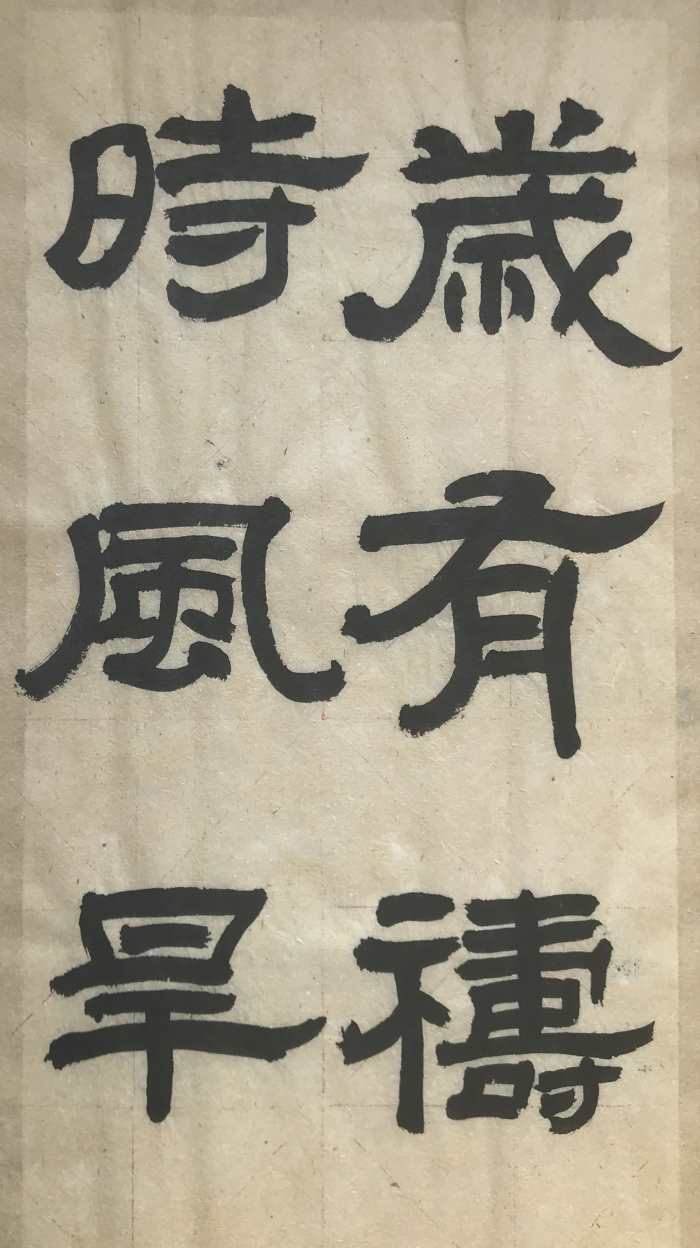 歲有禱
時風旱